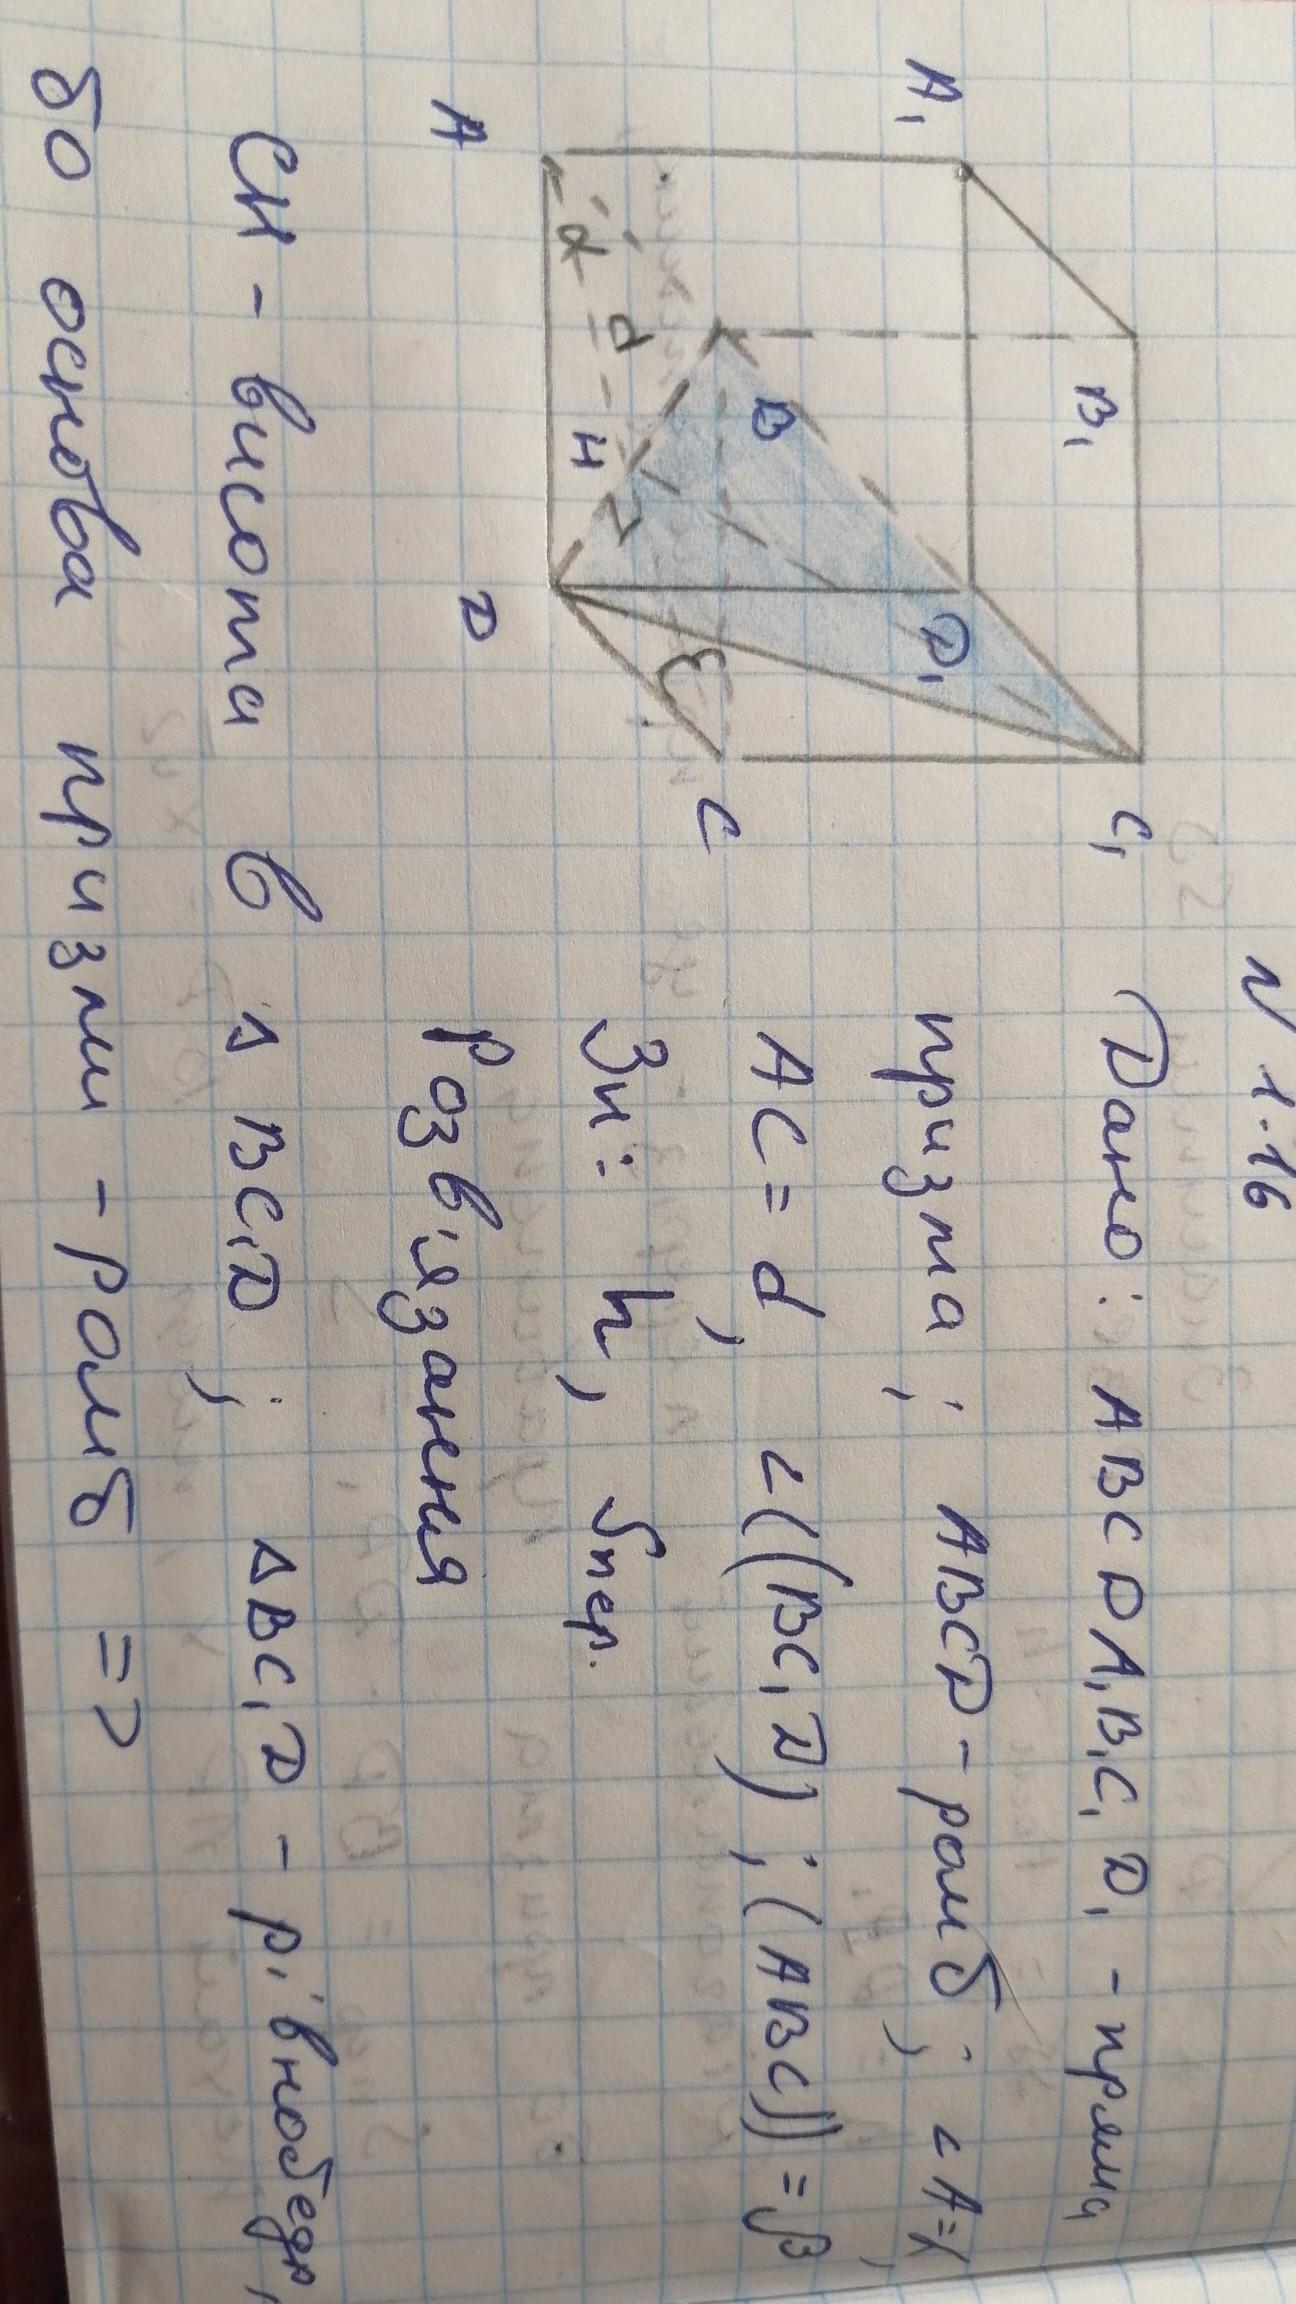 N 1.16
Дано: ABCDA₁B₁C₁D₁ - пряма
призма; ABCD - ромб; ∠A=α,
AC = d, ∠((BC₁D);(ABC)) = β
Зн: h, Sпер.
Розв'язання
CH - висота в ΔBC₁D; ΔBC₁D - рівнобедр,
бо основа призми - ромб =>
A₁
B₁
C₁
D₁
A
B
C
D
H
α
d